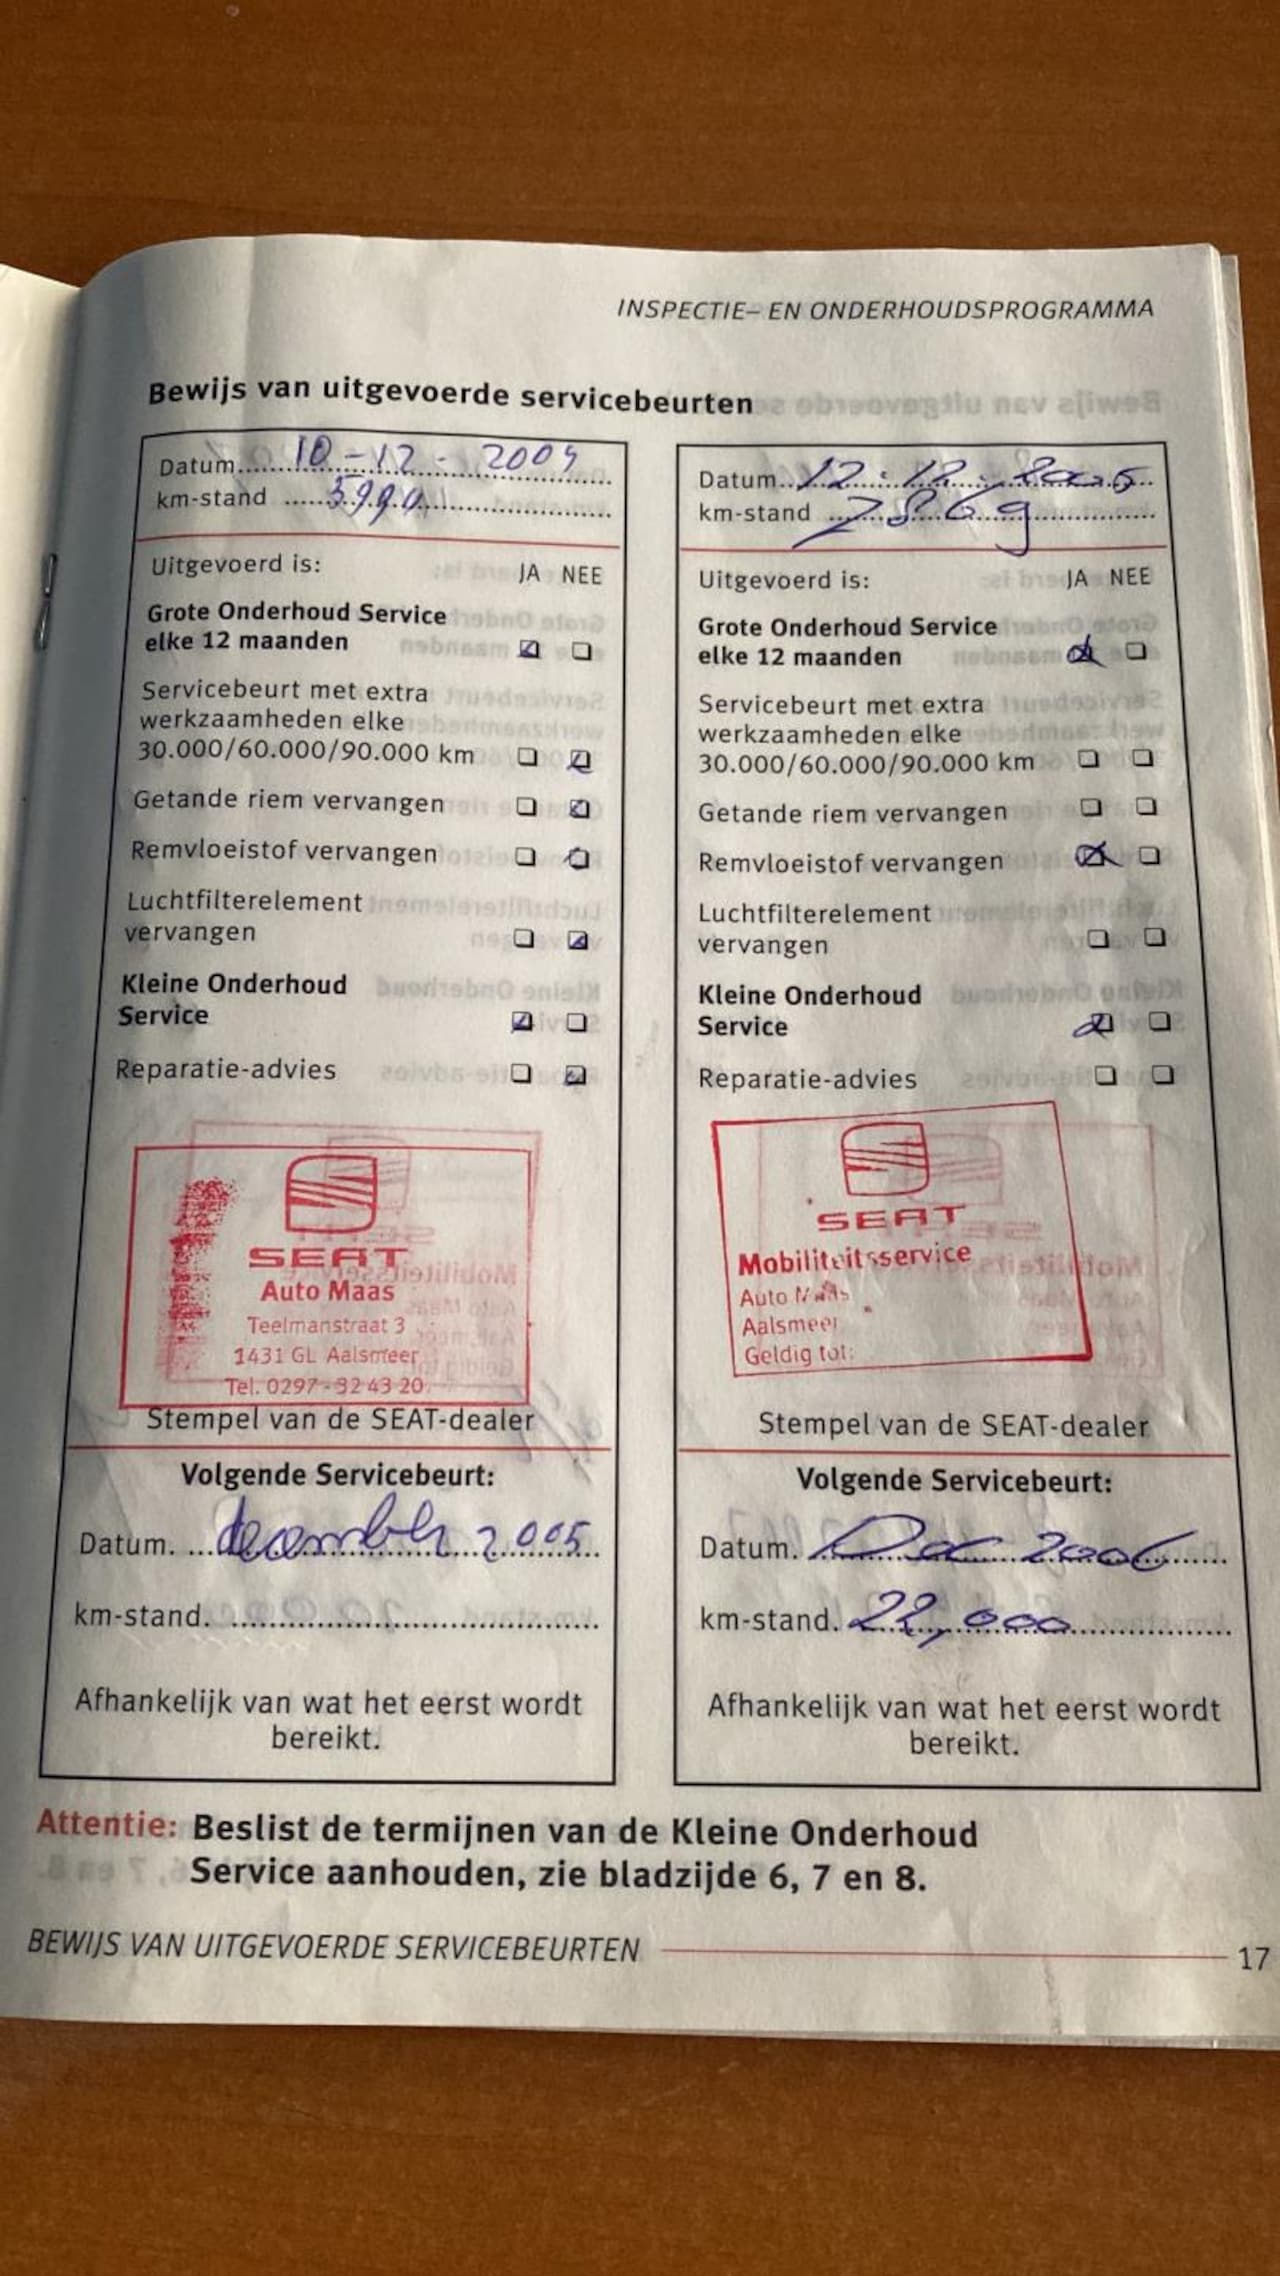 INSPECTIE– EN ONDERHOUDSPROGRAMMA
Bewijs van uitgevoerde servicebeurten
Datum 10-12-2004
km-stand
Uitgevoerd is: JA NEE
Grote Onderhoud Service
elke 12 maanden
Servicebeurt met extra
werkzaamheden elke
30.000/60.000/90.000 km
Getande riem vervangen
Remvloeistof vervangen
Luchtfilterelement
vervangen
Kleine Onderhoud
Service
Reparatie-advies
SEAT
Auto Maas
Teelmanstraat 3
1431 GL Aalsmeer
Tel. 0297-32 43 20
Stempel van de SEAT-dealer
Volgende Servicebeurt:
Datum. december 2005
km-stand.
Afhankelijk van wat het eerst wordt
bereikt.
Datum 12-12-2005
km-stand 7869
Uitgevoerd is: JA NEE
Grote Onderhoud Service
elke 12 maanden
Servicebeurt met extra
werkzaamheden elke
30.000/60.000/90.000 km
Getande riem vervangen
Remvloeistof vervangen
Luchtfilterelement
vervangen
Kleine Onderhoud
Service
Reparatie-advies
SEAT
Mobiliteitsservice
Auto Maas
Aalsmeer
Geldig tot:
Stempel van de SEAT-dealer
Volgende Servicebeurt:
Datum. Dec 2006
km-stand. 22,000
Afhankelijk van wat het eerst wordt
bereikt.
Attentie: Beslist de termijnen van de Kleine Onderhoud
Service aanhouden, zie bladzijde 6, 7 en 8.
BEWIJS VAN UITGEVOERDE SERVICEBEURTEN 17